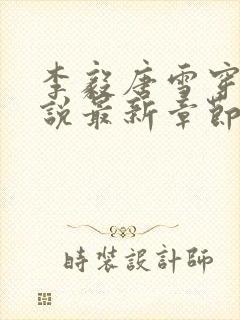 李毅唐雪穿
說最新章節
時裝設計師